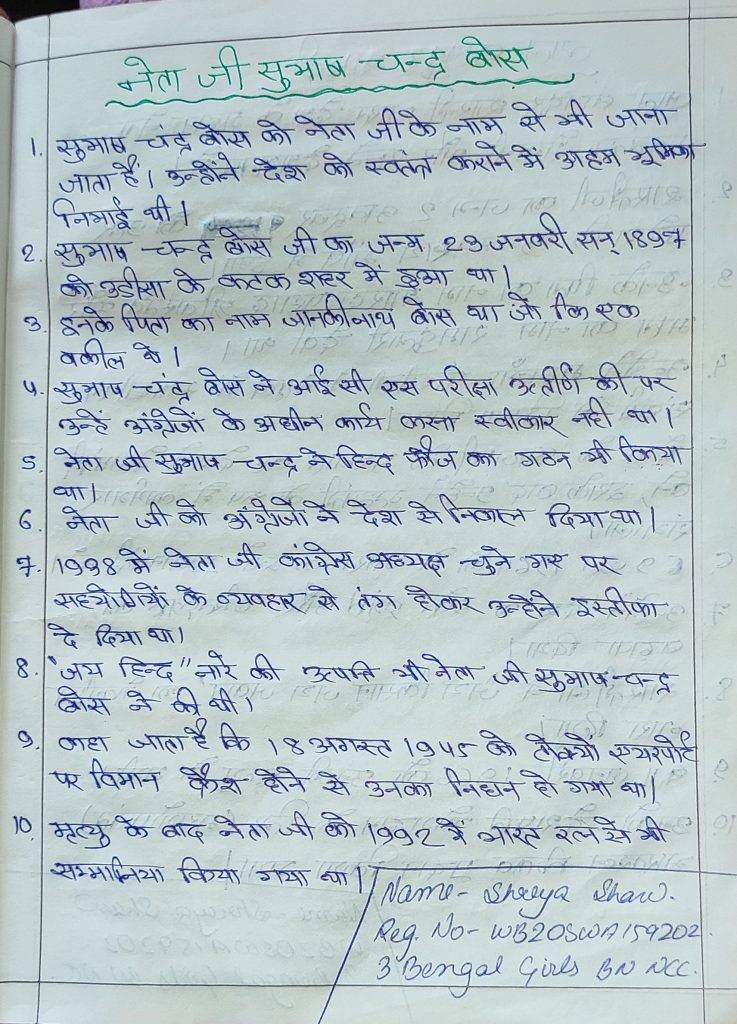 नेता जी सुभाष चन्द्र बोस
1. सुभाष चंद्र बोस को नेता जी के नाम से भी जाना
जाता है। उन्होंने देश को स्वतंत्र कराने में अहम भूमिका
निभाई थी।
2. सुभाष चन्द्र बोस जी का जन्म 23 जनवरी सन् 1897
को उडीसा के कटक शहर में हुआ था।
3. इनके पिता का नाम जानकीनाथ बोस था जो कि एक
वकील थे।
4. सुभाष चंद्र बोस ने आई सी एस परीक्षा उत्तीर्ण की पर
उन्हें अंग्रेजों के अधीन कार्य करना स्वीकार नही था।
5. नेता जी सुभाष चन्द्र ने हिन्द फौज का गठन भी किया
था।
6. नेता जी को अंग्रेजों ने देश से निकाल दिया था।
7. 1998 में नेता जी कांग्रेस अध्यक्ष चुने गए पर
सहयोगियों के व्यवहार से तंग होकर उन्होंने इस्तीफा
दे दिया था।
8. "जय हिन्द" नारे की उत्पत्ति भी नेता जी सुभाष चन्द्र
बोस ने की थी।
9. कहा जाता है कि 18 अगस्त 1945 को टोक्यो एयरपोर्ट
पर विमान क्रैश होने से उनका निधन हो गया था।
10. मृत्यु के बाद नेता जी को 1992 में भारत रत्न से भी
सम्मानिया किया गया था।
Name- Shreya Shaw.
Reg. No- WB20SWA159202.
3 Bengal Girls BN NCC.